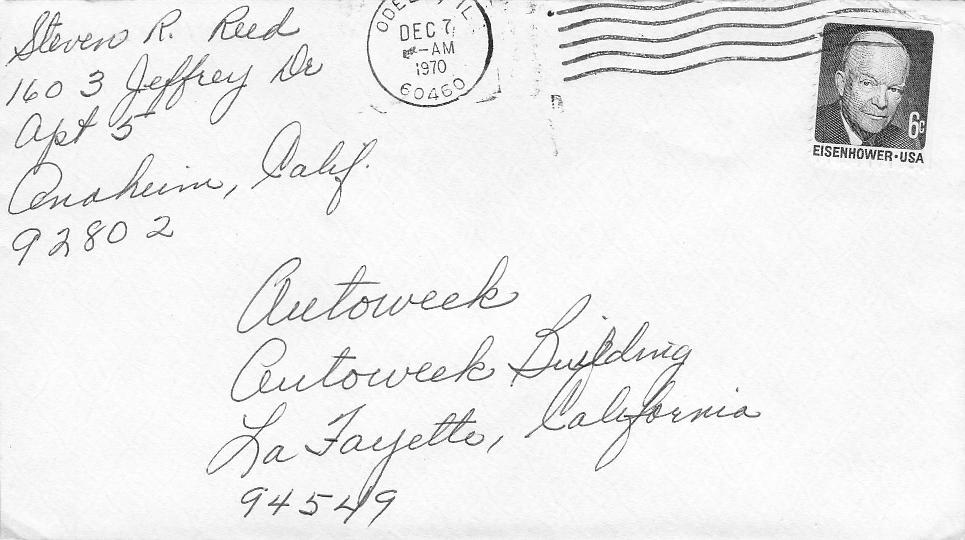 Steven R. Reed
1603 Jeffrey Dr
Apt 5
Anaheim, Calif.
92802
ODELL, IL
DEC 7
AM
1970
60460
6c
EISENHOWER·USA
Autoweek
Autoweek Building
La Fayette, California
94549